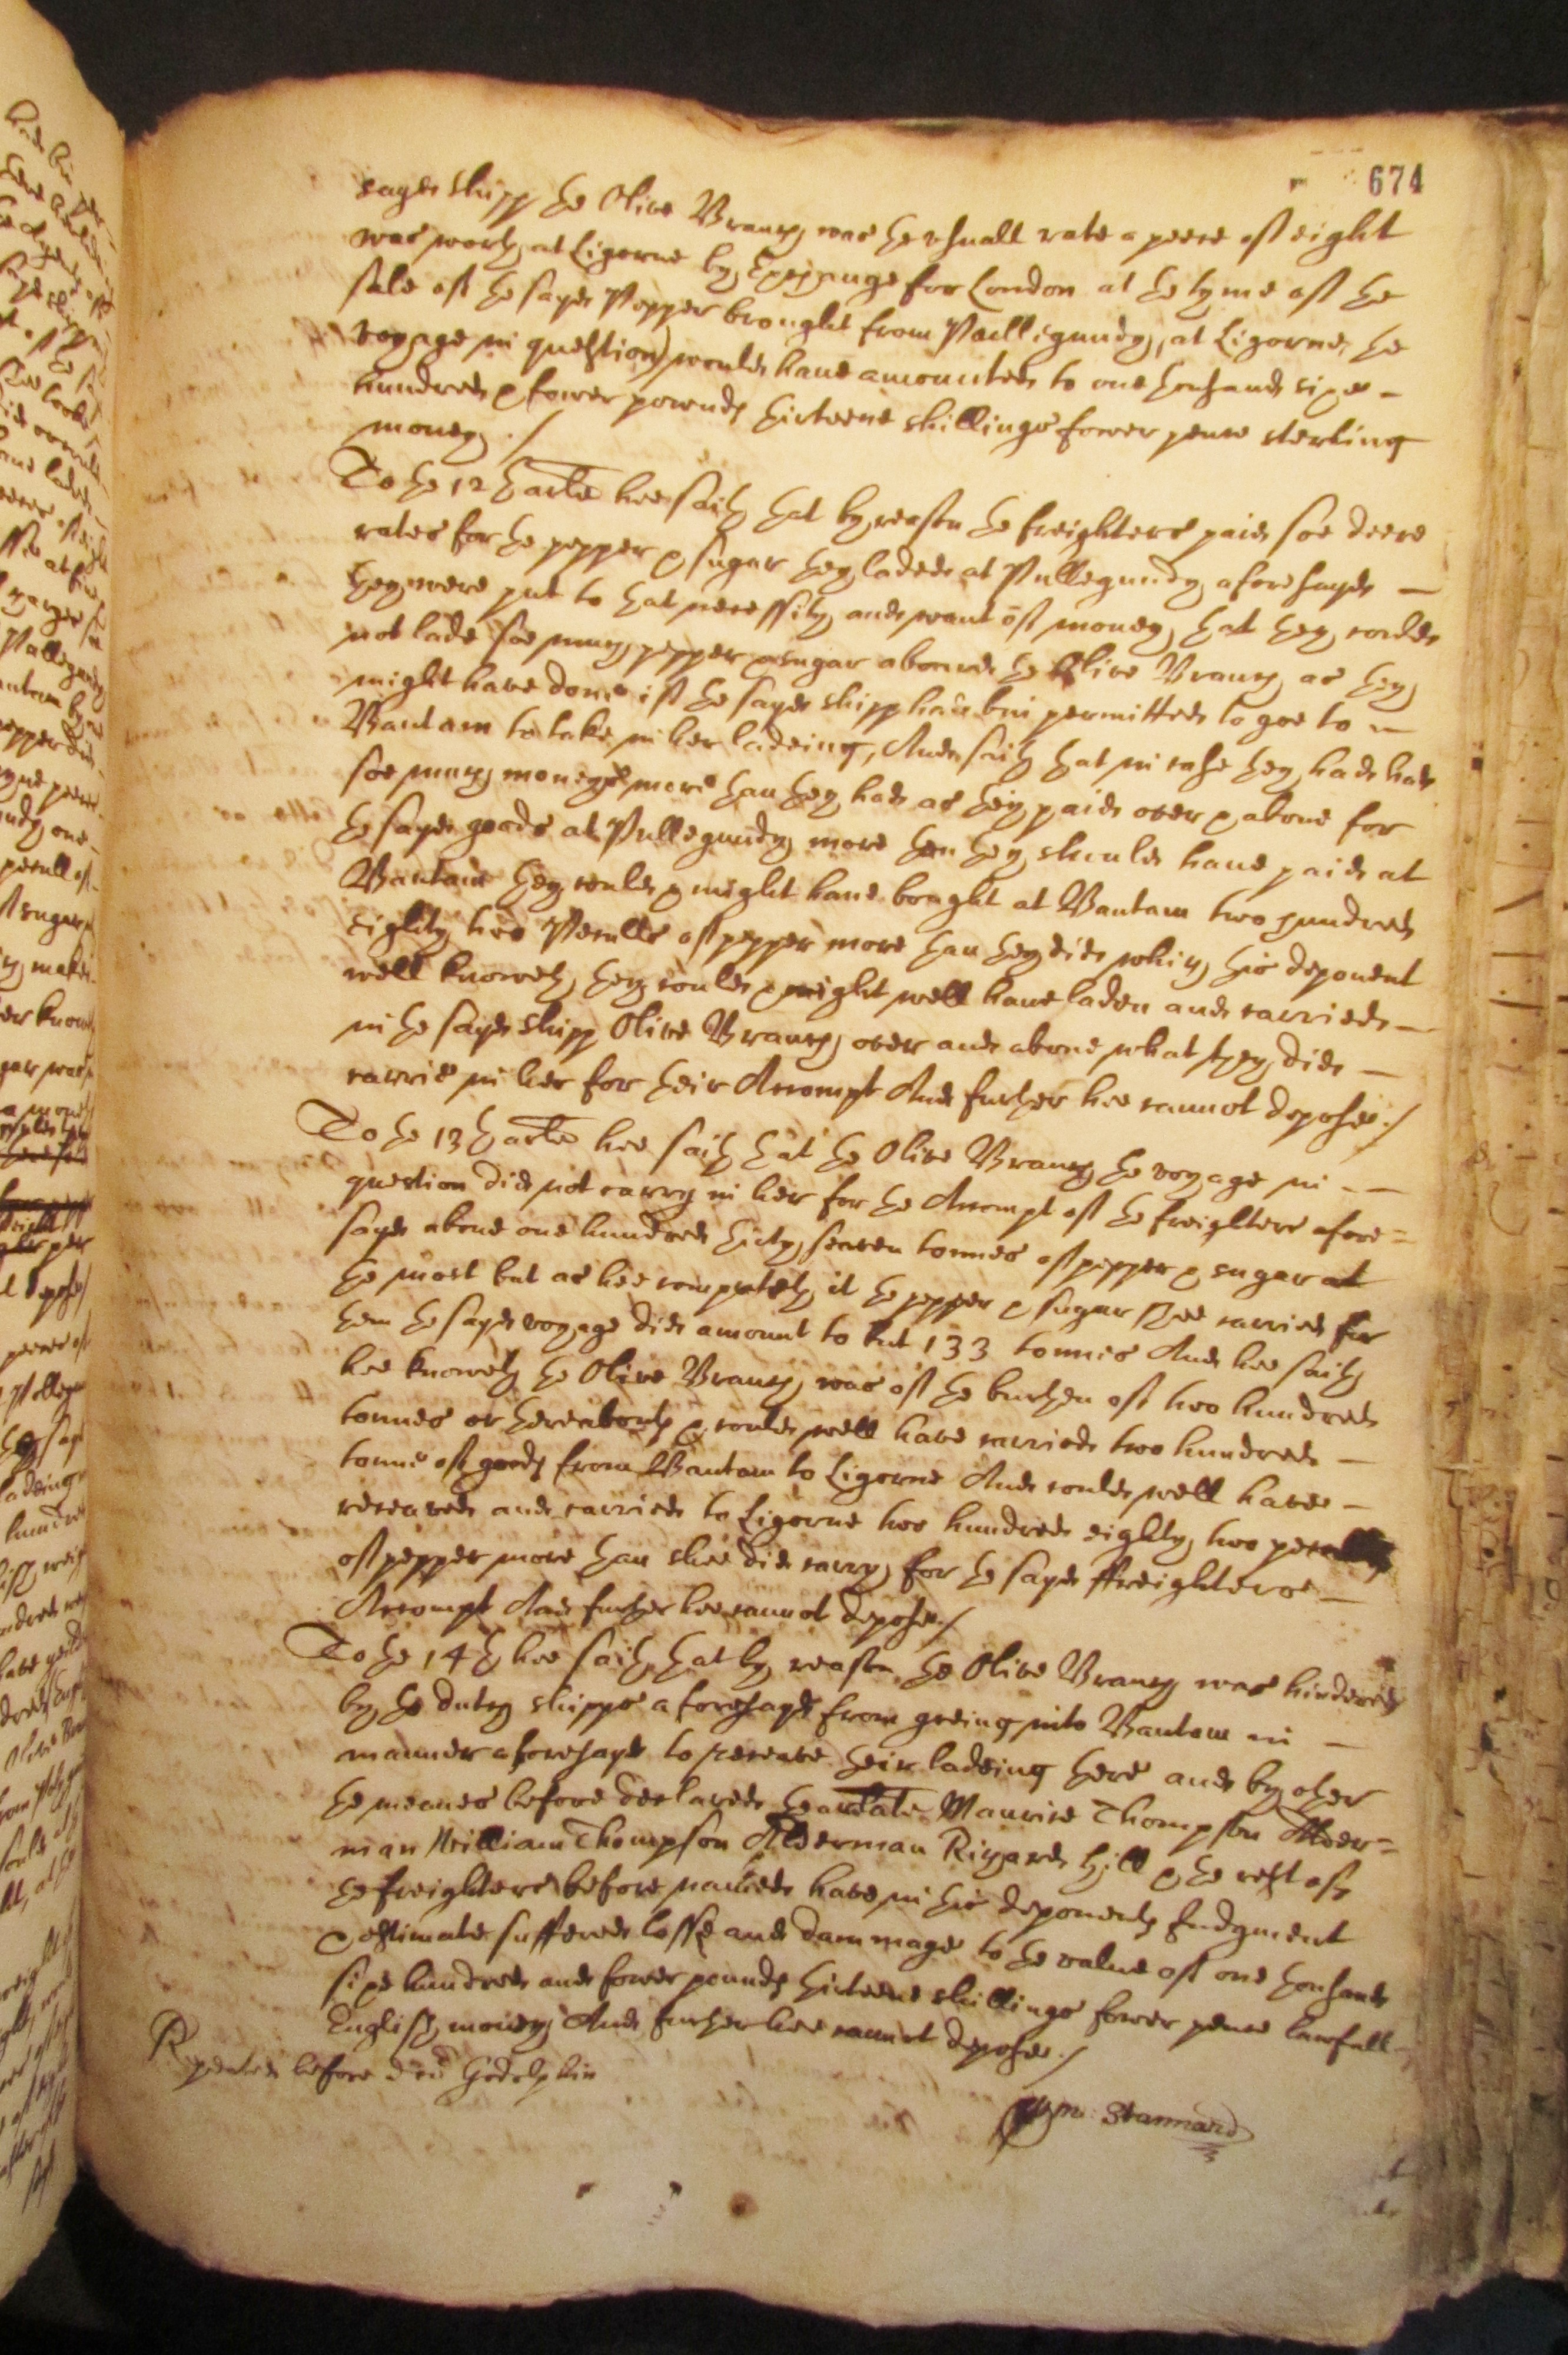 674
sayde shipp the Olive Branch was the usuall rate a peece of eight
was worth at Ligorne by Exchange for London at the tyme of the
sale of the sayde Pepper brought from Pullegundy, at Ligorne, the
voyage in question) would have amounted to one thousand sixe -
hundred & fower pownds thirteene shillings fower pence sterling
money ./
To the 12th arle hee saith that by reason the freighters paid soe deere
rates for the pepper & sugar they laded at Pullegundy aforesayde -
they were put to that necessity and want of money that they could
not lade soe much pepper & sugar aboard the Olive Branch as they
might have done if the sayde shipp had bin permitted to goe to -
Bantam to take in her ladeing, And saith that in case they had had
soe much moneyes more than they had as they paide over & above for
the sayde goods at Pullegundy more then they should have paide at
Bantam they could & might have bought at Bantam two hundred
eighty two Peculls of pepper more than they did which this deponent
well knoweth they could & might well have laden and carried -
in the sayde shipp Olive Branch over and above what they did -
carrie in her for their Accompt And further hee cannot depose ./
To the 13th arle hee saith that the Olive Branch the voyage in - -
question did not carry in her for the Accompt of the freighters afore=
sayde above one hundred thirty seaven tonnes of pepper & sugar at
the most but as hee computeth it the pepper & sugar shee carried for
them the sayde voyage did amount to but 133 tonnes And hee saith
hee knoweth the Olive Branch was of the burthen of two hundred
tonnes or thereabouts & could well have carried two hundred -
tonne of goods from Bantam to Ligorne And could well have -
receaved and carried to Ligorne two hundred eighty two peculls
of pepper more than shee did carry for the sayde ffreighters -
Accompt And further hee cannot depose ./
To the 14th hee saith that by reason the Olive Branch was hindered
by the dutch shipps aforesayde from goeing into Bantam in -
manner aforesayde to receave their ladeing there and by other
the meanes before declared the arlate Maurice Thompson Alder=
man William Thompson Alderman Richard Hill & the rest of
the freighters before named have in this deponents Judgment
& estimate suffered losse and dammage to the value of one thousand
sixe hundred and fower pounds thirteene shillings fower pence lawfull
English money, And further hee cannot depose ./
Repeated before doc Godolphin
Wm: Stannard